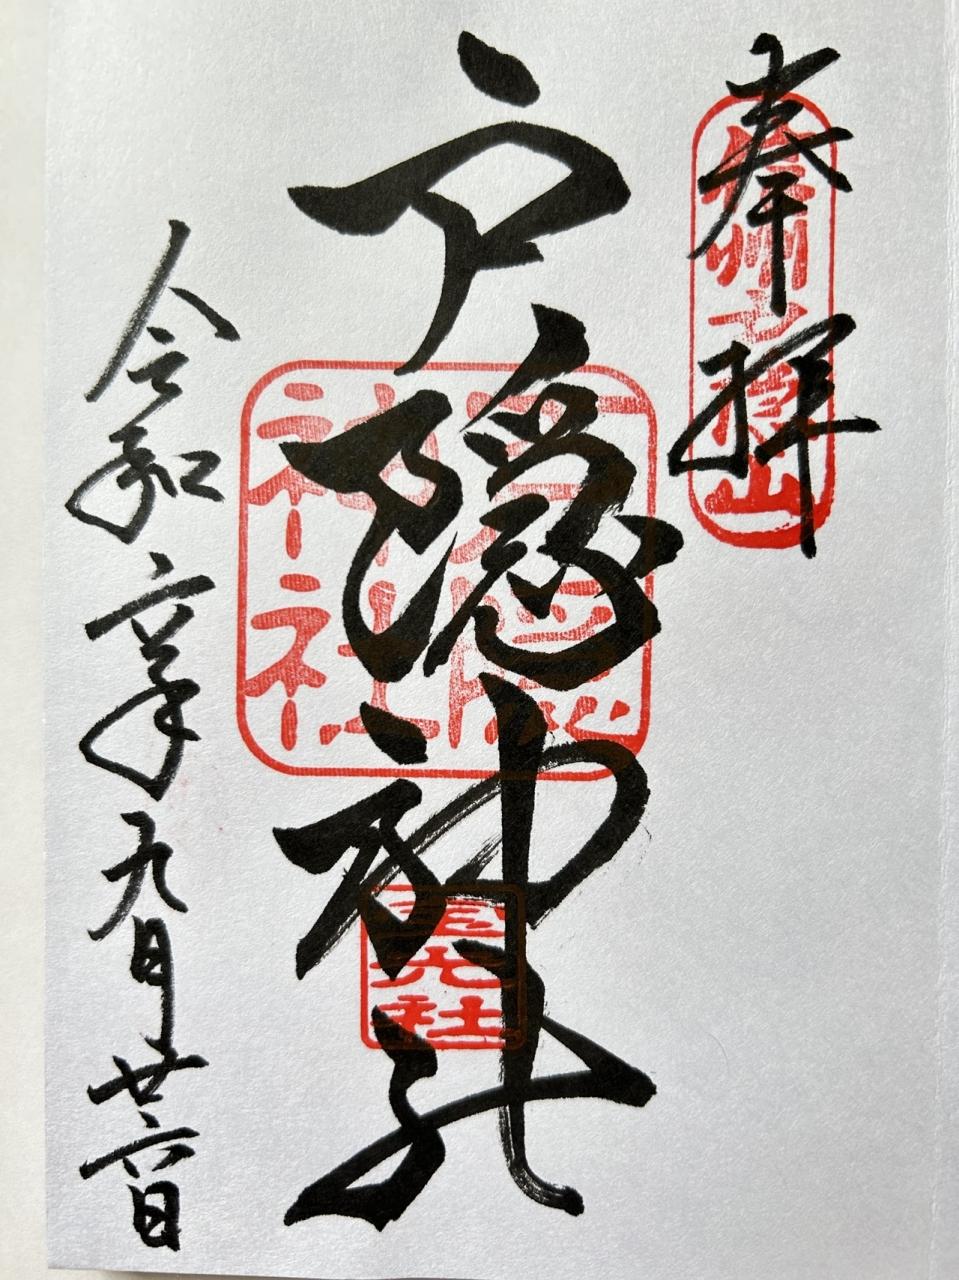 奉拝
信州戸隠山
戸隠神社
戸隠
神社
宝光社
令和六年九月廿六日